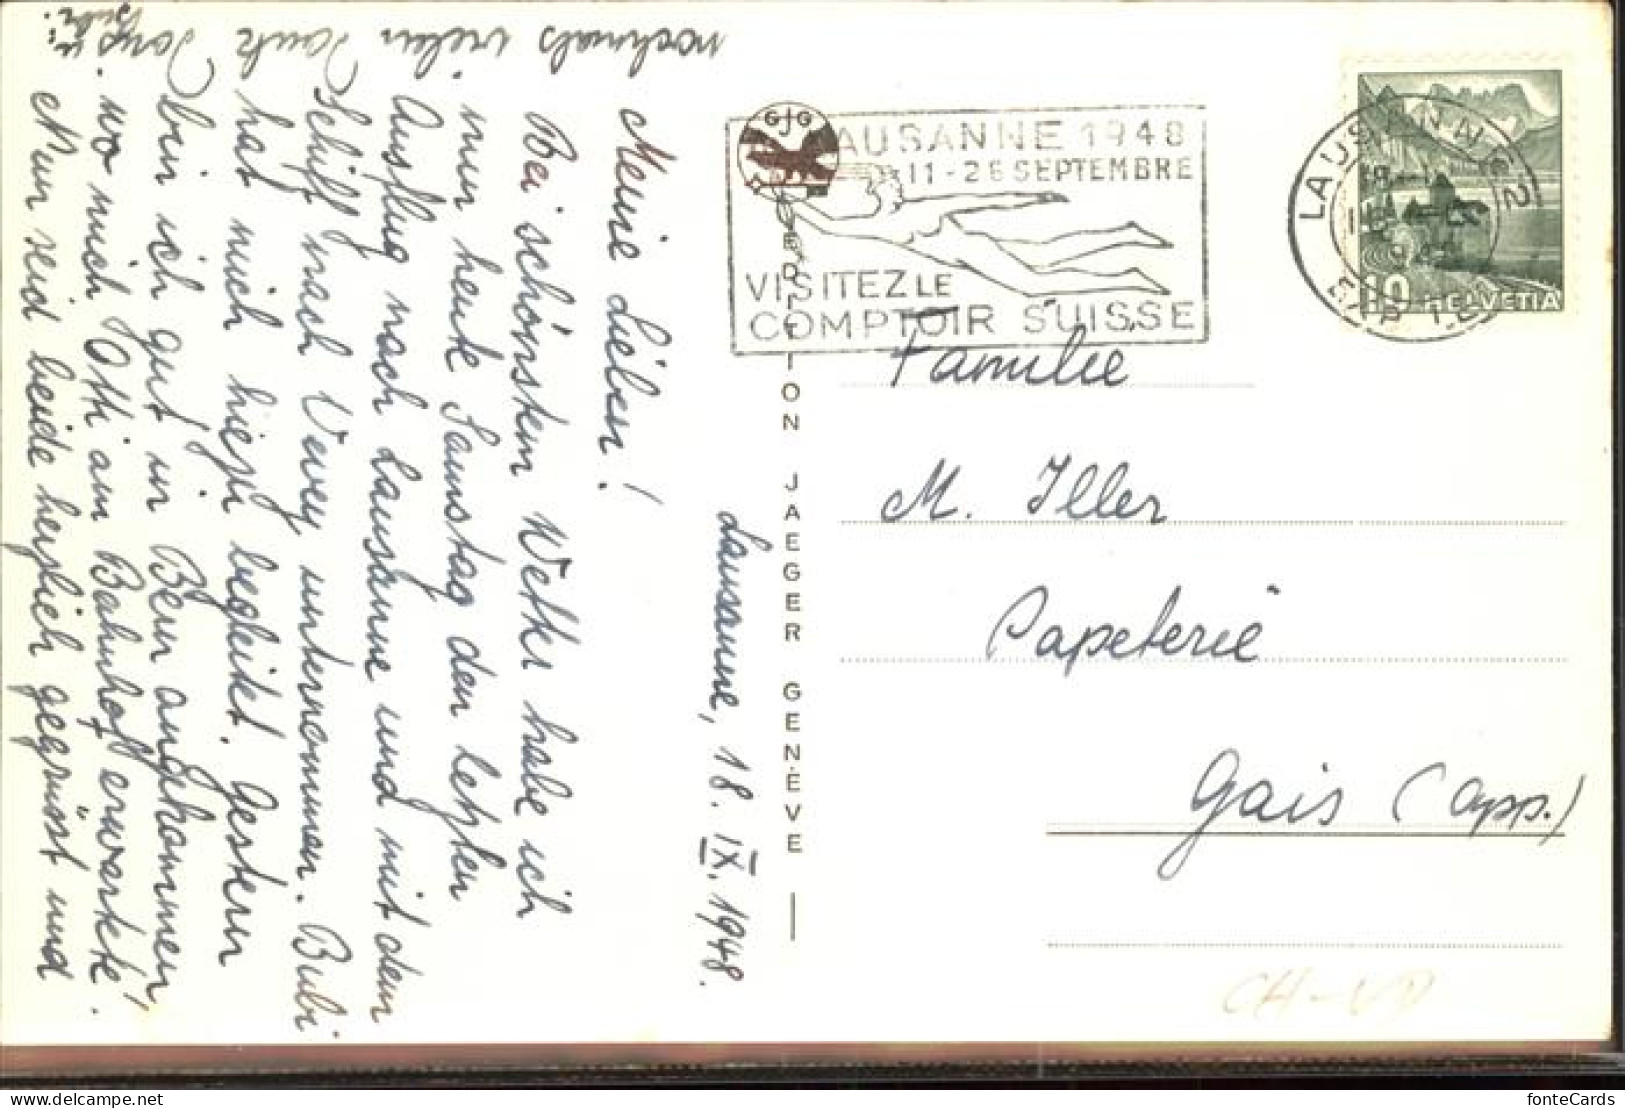 Lausanne, 18. IX. 1948.
Meine Lieben!
Bei schönstem Wetter habe ich
nun heute Samstag den letzten
Ausflug nach Lausanne und mit dem
Schiff nach Vevey unternommen. Bubi
hat mich hiezu begleitet. Gestern
bin ich gut in Bern angekommen,
wo mich Otti am Bahnhof erwartete.
Nun seid beide herzlich gegrüsst und
nochmals vielen Dank
Bubi.
GJG
EDITION JAEGER GENÈVE
LAUSANNE 1948
11-26 SEPTEMBRE
VISITEZ LE
COMPTOIR SUISSE
LAUSANNE 2
EXP. LET
10 HELVETIA
Familie
M. Iller
Papeterie
Gais (App.)
CH-VD
fonteCards
delcampe.net